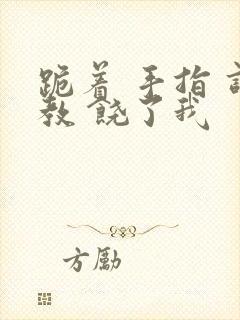 跪着 手指
教 饶了我
方勵